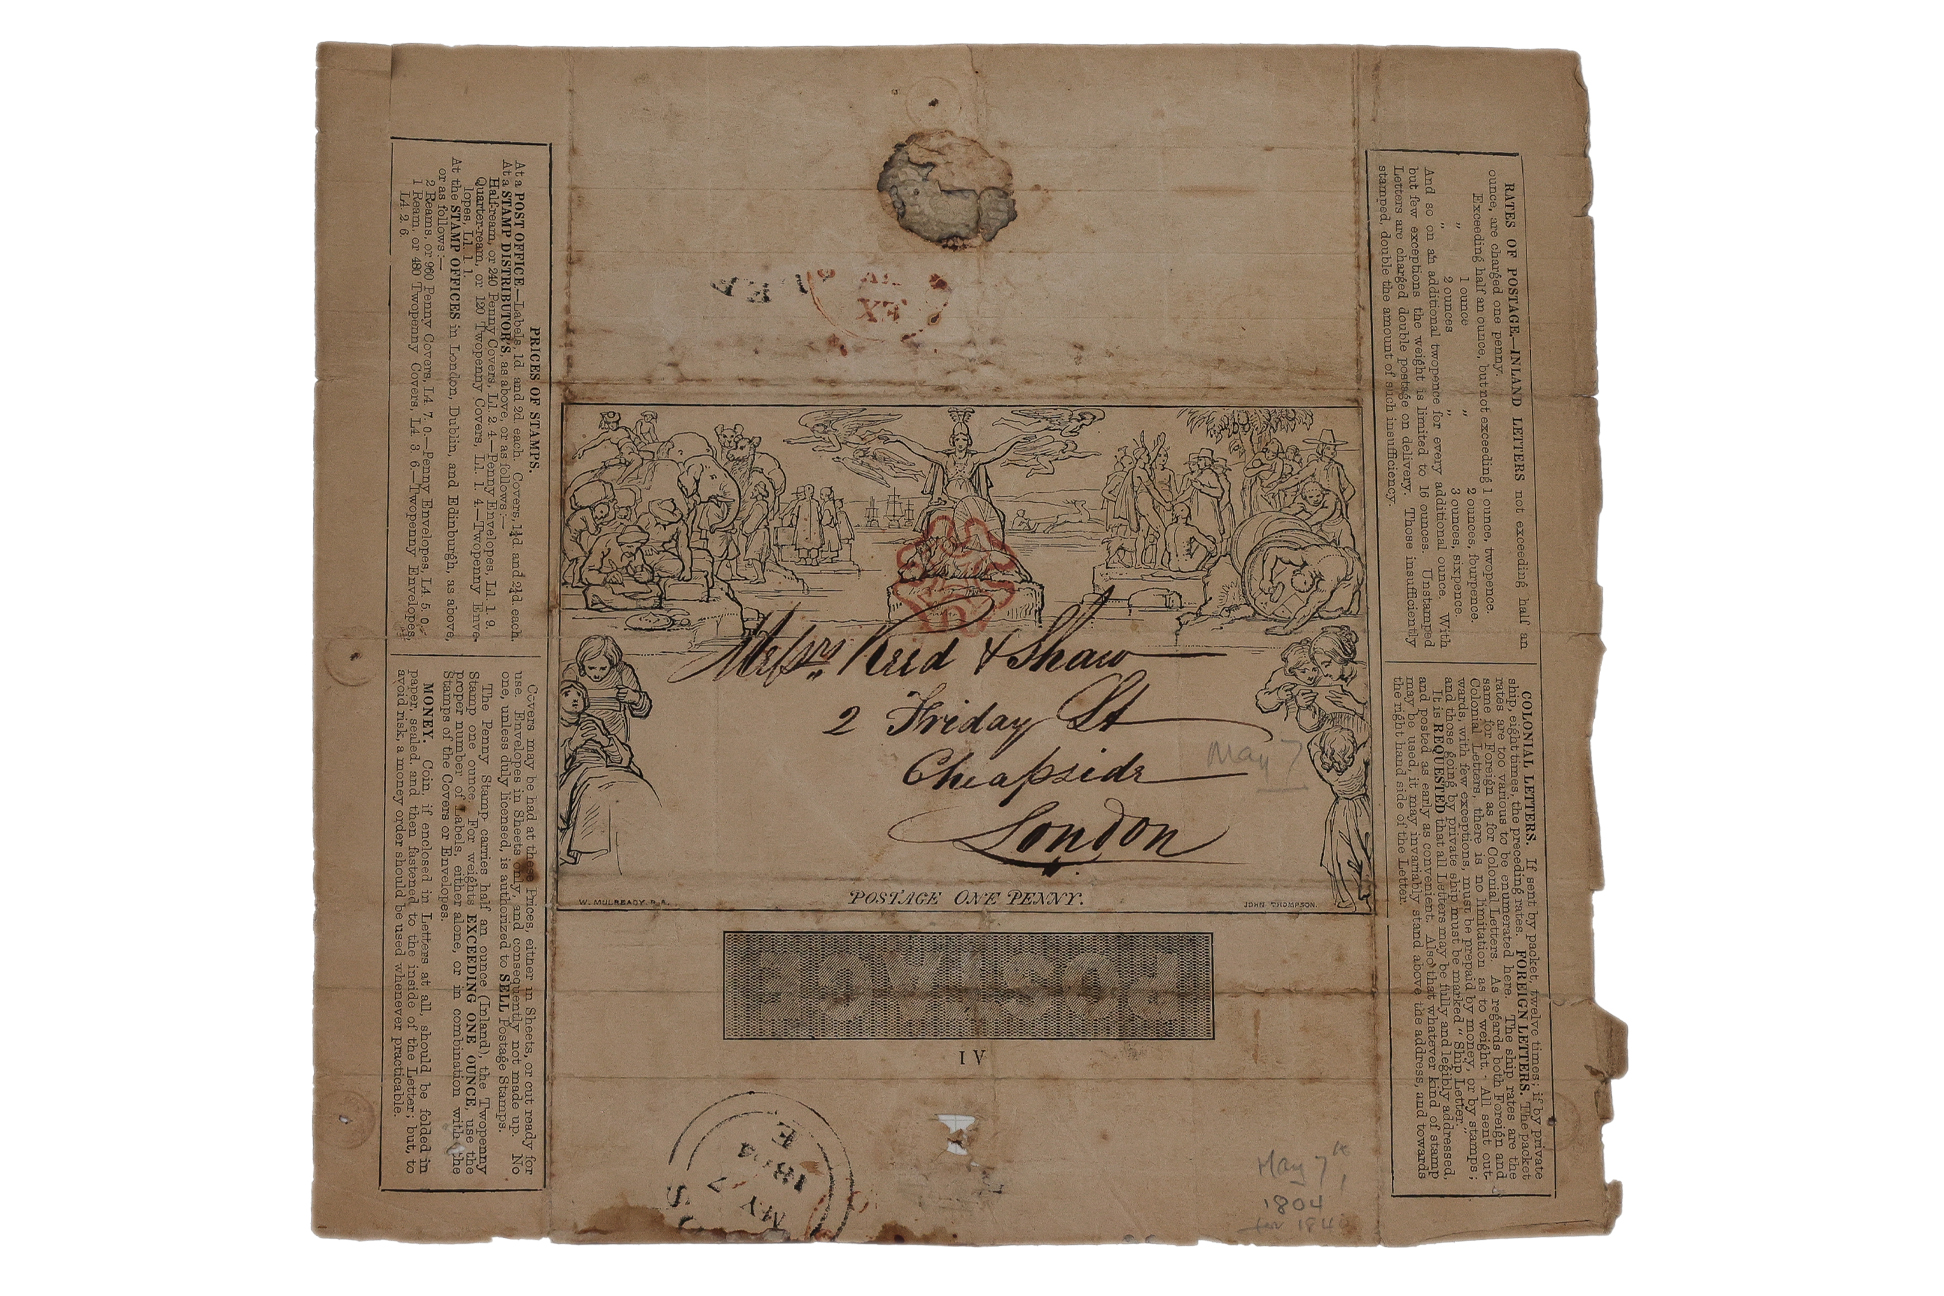 PRICES OF STAMPS.
At a POST OFFICE.—Labels, 1d. and 2d. each. Covers, 1¼d. and 2¼d. each.
At a STAMP DISTRIBUTOR'S, as above, or as follows:—
Half-ream, or 240 Penny Covers, L1. 2. 4.—Penny Envelopes, L1. 1. 9.
Quarter-ream, or 120 Twopenny Covers, L1. 1. 4.—Twopenny Enve-
lopes, L1. 1. 1.
At the STAMP OFFICES in London, Dublin, and Edinburgh, as above,
or as follows:—
2 Reams, or 960 Penny Covers, L4. 7. 0.—Penny Envelopes, L4. 5. 0.
1 Ream, or 480 Twopenny Covers, L4. 3. 6.—Twopenny Envelopes,
L4. 2. 6.
Covers may be had at these Prices, either in Sheets, or cut ready for
use. Envelopes in Sheets only, and consequently not made up. No
one, unless duly licensed, is authorized to SELL Postage Stamps.
The Penny Stamp carries half an ounce (Inland), the Twopenny
Stamp one ounce. For weights EXCEEDING ONE OUNCE, use the
proper number of Labels, either alone, or in combination with the
Stamps of the Covers or Envelopes.
MONEY. Coin, if enclosed in Letters at all, should be folded in
paper, sealed, and then fastened to the inside of the Letter; but, to
avoid risk, a money order should be used whenever practicable.
EX
Messrs Reid & Shaw
2 Friday St
Cheapside
London
May 7
POSTAGE ONE PENNY.
W. MULREADY. R.A.
JOHN THOMPSON.
POSTAGE
IV
E
1804
MY 7
May 7th,
1804
for 184
RATES OF POSTAGE.—INLAND LETTERS not exceeding half an
ounce, are charged one penny.
Exceeding half an ounce, but not exceeding 1 ounce, twopence.
" 1 ounce " 2 ounces, fourpence.
" 2 ounces " 3 ounces, sixpence.
And so on an additional twopence for every additional ounce. With
but few exceptions the weight is limited to 16 ounces. Unstamped
Letters are charged double postage on delivery. Those insufficiently
stamped, double the amount of such insufficiency.
COLONIAL LETTERS. If sent by packet, twelve times; if by private
ship, eight times, the preceding rates. FOREIGN LETTERS. The packet
rates are too various to be enumerated here. The ship rates are the
same for Foreign as for Colonial Letters. As regards both Foreign and
Colonial Letters, there is no limitation as to weight. All sent out-
wards, with few exceptions, must be prepaid by money, or by stamps;
and those going by private ship must be marked "Ship Letter."
It is REQUESTED that all Letters may be fully and legibly addressed,
and posted as early as convenient. Also that whatever kind of stamp
may be used, it may invariably stand above the address, and towards
the right hand side of the Letter.